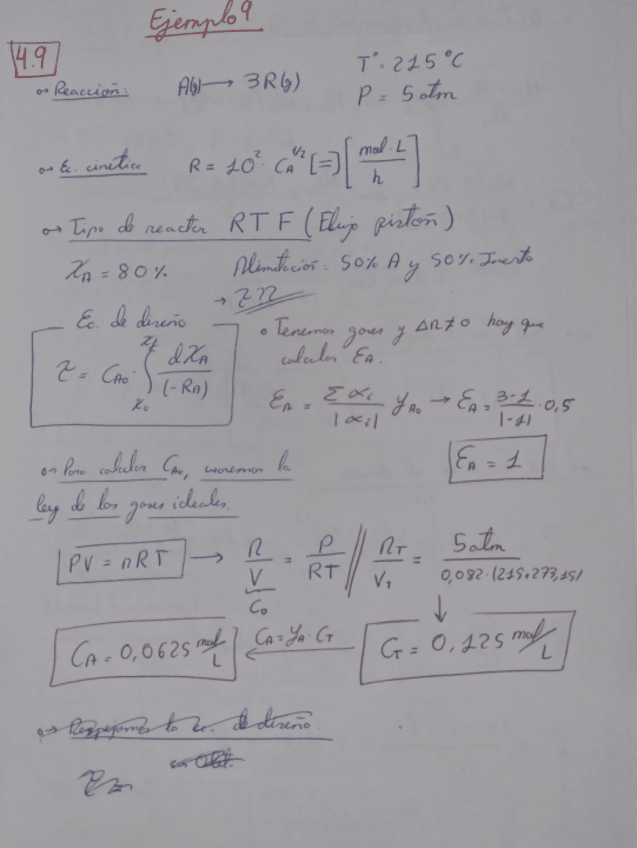 Ejemplo 9
4.9
T° = 215 °C
⊶ Reacción: A(g) → 3R(g)
P = 5 atm
⊶ Ec. cinetica R = 10² · C_A^1/2 [=] [mol · L / h]
⊶ Tipo de reactor RTF (Flujo piston)
X_A = 80 % Alimetacion: 50% A y 50% Inerto
Ec. de diseño
• Tenemos gases y Δn ≠ 0 hay que
calcular ε_A.
τ = C_A0 · ∫_{X_0}^{X_f} dX_A / (-R_A)
ε_A = Σ α_i / |α_i| y_A0 → ε_A = 3-1 / |-1| · 0,5
ε_A = 1
⊶ Para calcular C_A0, usaremos la
ley de los gases ideales.
PV = nRT → n / V = P / RT // n_T / V_T = 5 atm / 0,082 · (215+273,15)
C_0
C_A = 0,0625 mol/L ← C_A = y_A · C_T C_T = 0,125 mol/L
⊶ Despejamos la ec. de diseño.
τ =